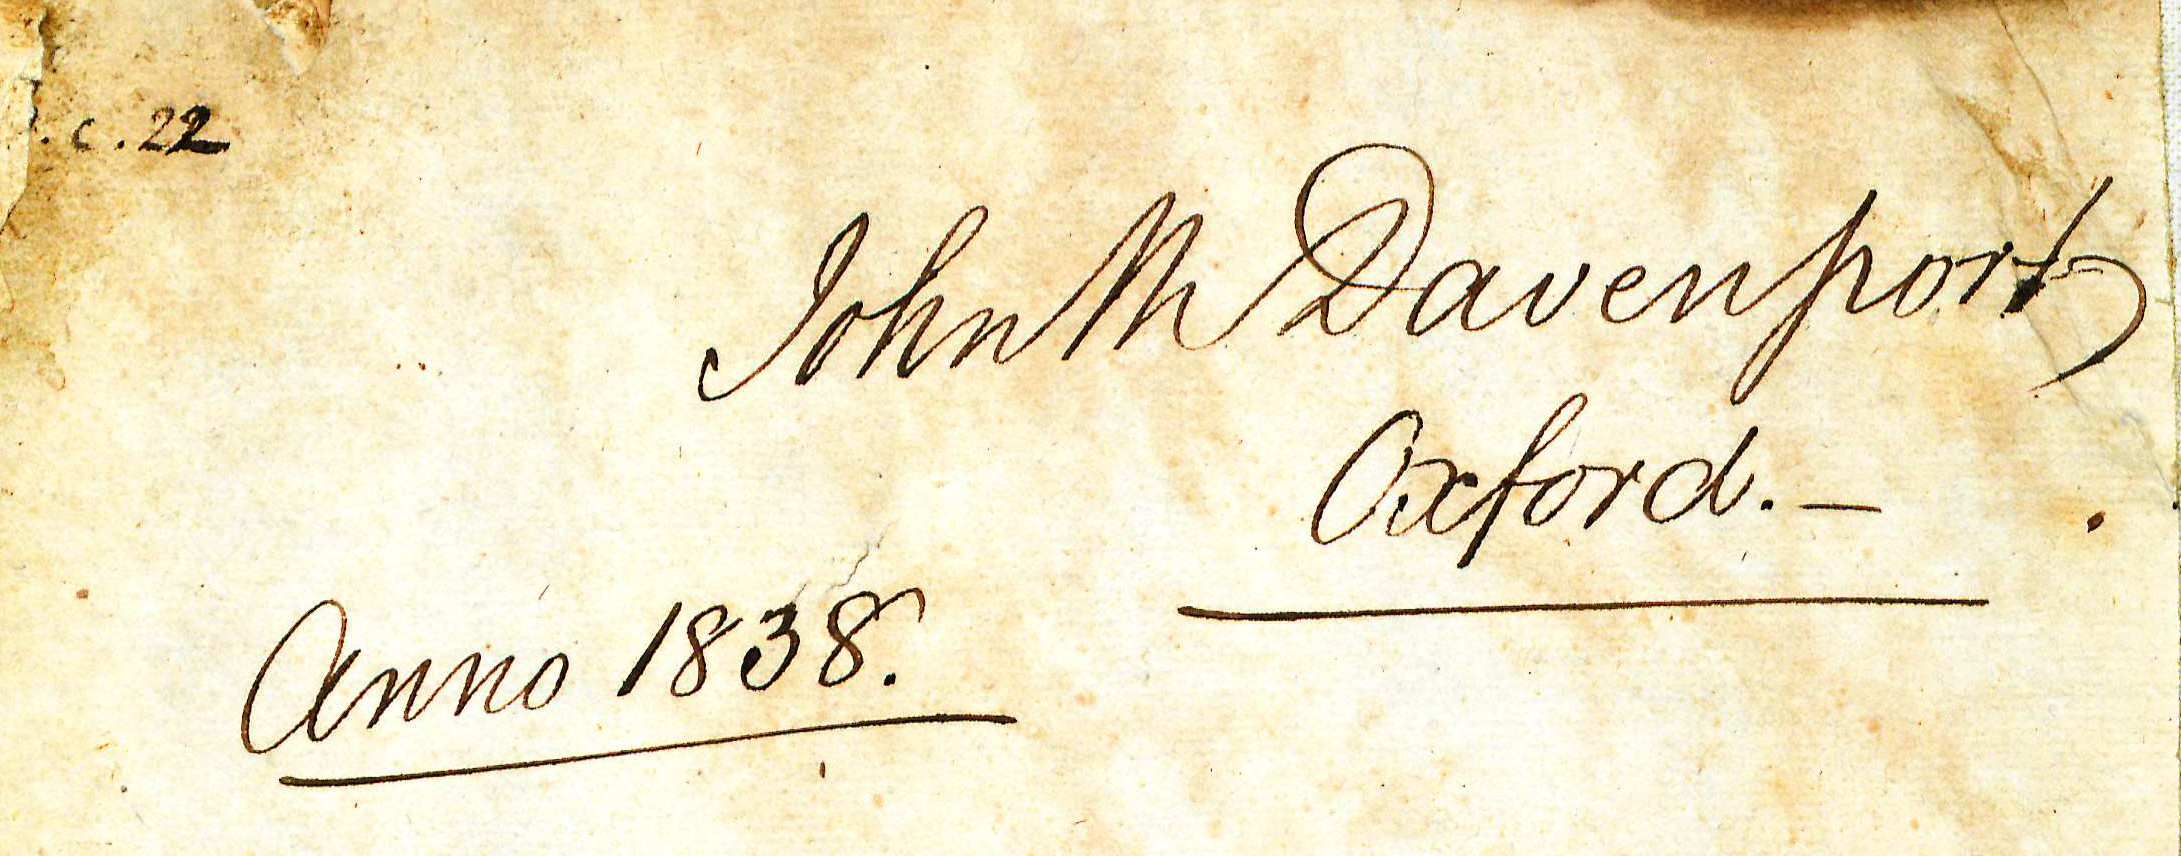 .c.22
John M Davenport
Oxford.—
Anno 1838.